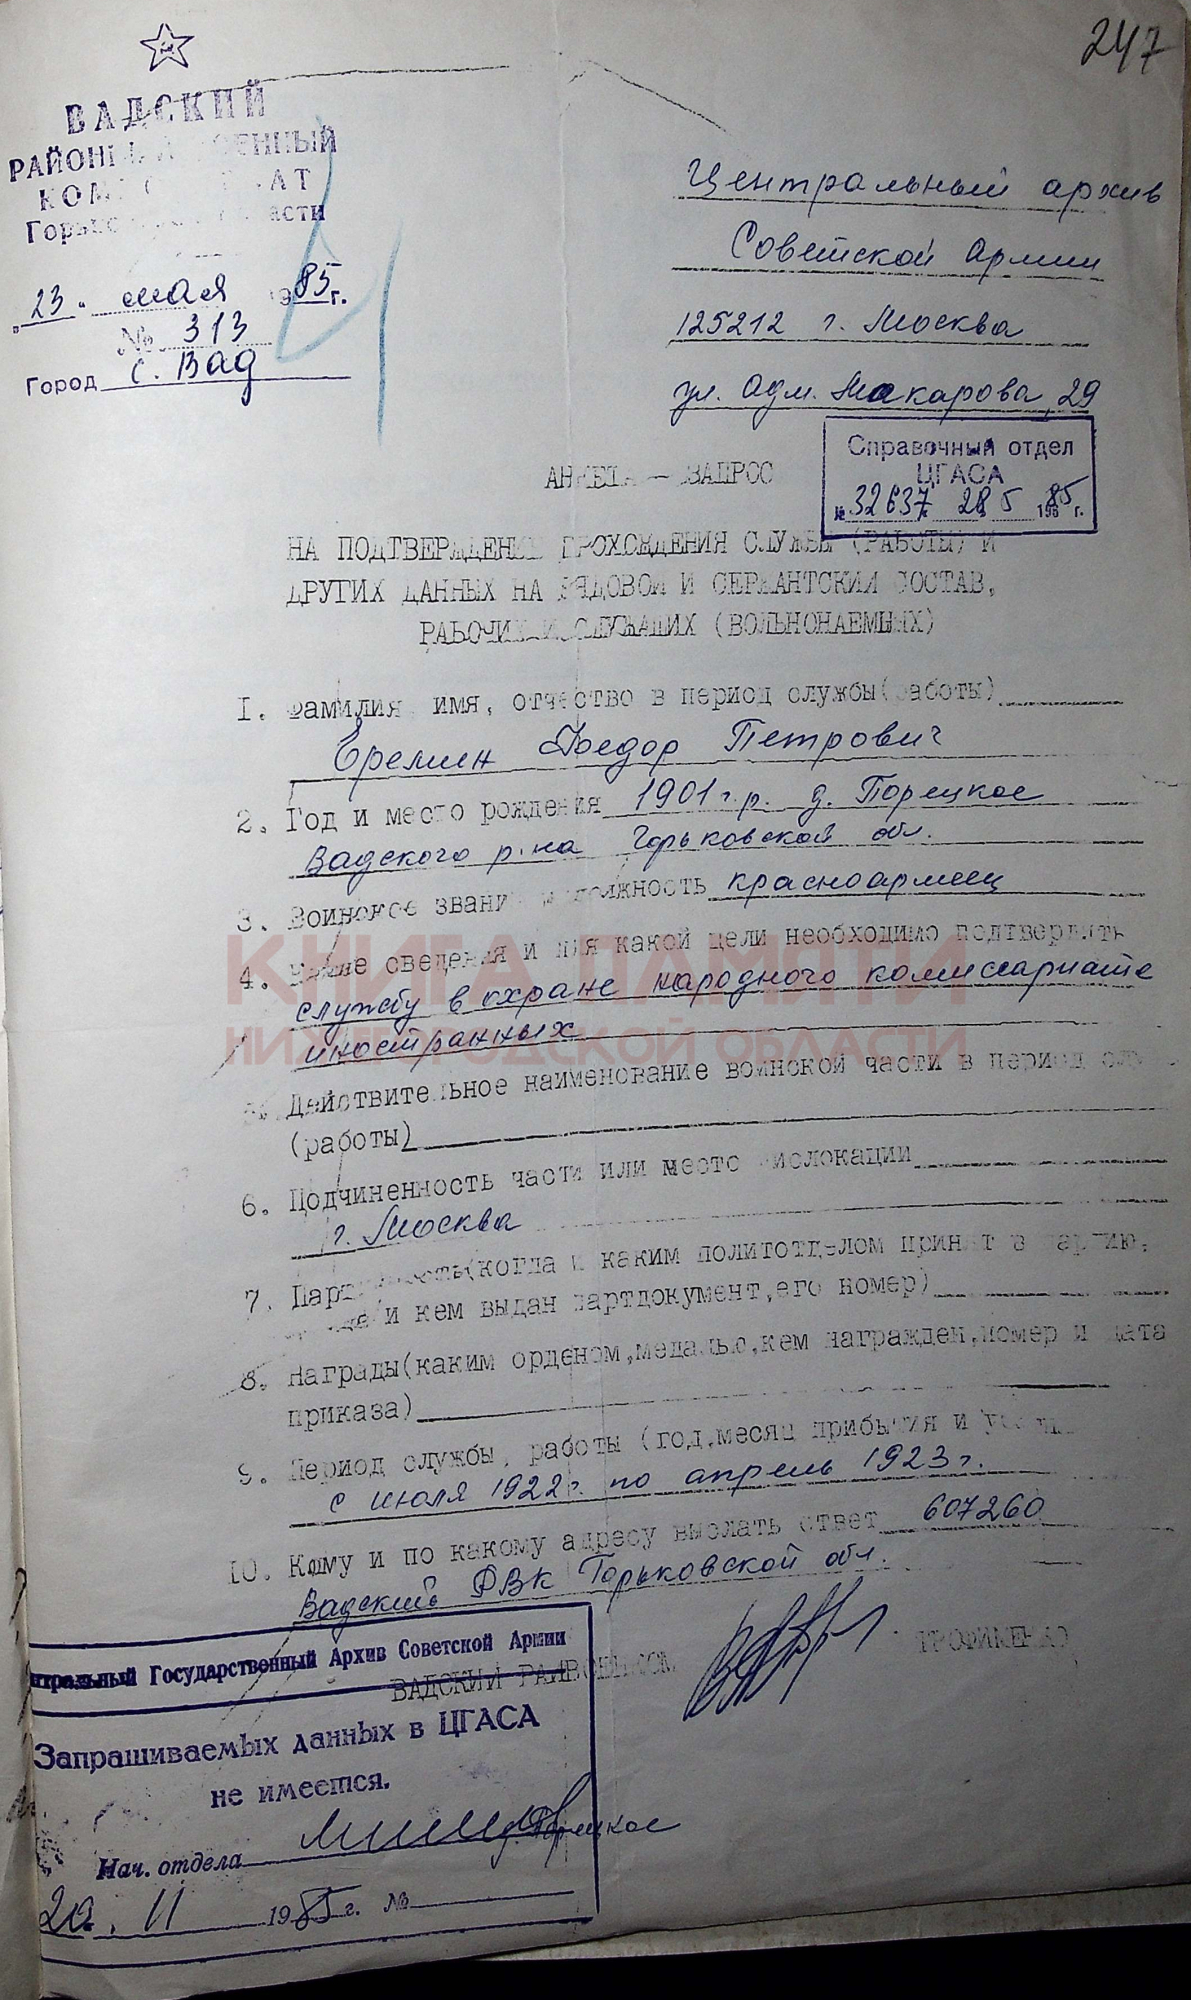 247
ВАДСКИЙ
РАЙОННЫЙ ВОЕННЫЙ
КОМИССАРИАТ
Горьковской области
"23" мая 1985 г.
№ 313
Город с. Вад
Центральный архив
Советской Армии
125212 г. Москва
ул. Адм. Макарова, 29
Справочный отдел
ЦГАСА
№ 32637 28 5 1985 г.
АНКЕТА — ЗАПРОС
НА ПОДТВЕРЖДЕНИЕ ПРОХОЖДЕНИЯ СЛУЖБЫ (РАБОТЫ) И
ДРУГИХ ДАННЫХ НА РЯДОВОЙ И СЕРЖАНТСКИЙ СОСТАВ,
РАБОЧИХ И СЛУЖАЩИХ (ВОЛЬНОНАЕМНЫХ)
I. Фамилия, имя, отчество в период службы(работы)
Еремин Федор Петрович
2. Год и место рождения 1901 г.р. д. Порецкое
Вадского р-на Горьковской обл.
3. Воинское звание и должность красноармеец
4. Какие сведения и для какой цели необходимо подтвердить
службу в охране народного комиссариате
иностранных
КНИГА ПАМЯТИ
НИЖЕГОРОДСКОЙ ОБЛАСТИ
5. Действительное наименование воинской части в период
(работы)
6. Подчиненность части или место дислокации
г. Москва
7. Партийность(когда и каким политотделом принят в партию,
и кем выдан партдокумент, его номер)
8. Награды(каким орденом, медалью, кем награжден, номер и дата
приказа)
9. Период службы, работы (год, месяц прибытия и
с июля 1922 г. по апрель 1923 г.
10. Кому и по какому адресу выслать ответ 607260
Вадский РВК Горьковской обл.
ВАДСКИЙ РАЙВОЕНКОМ ТРОФИМЕНКО
Центральный Государственный Архив Советской Армии
Запрашиваемых данных в ЦГАСА
не имеется.
Нач. отдела
д. Порецкое
20. 11 1985 г. №